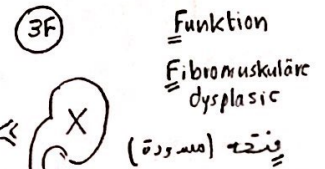 3F
Funktion
Fibromuskuläre
dysplasie
X
فتحه (مسدودة)